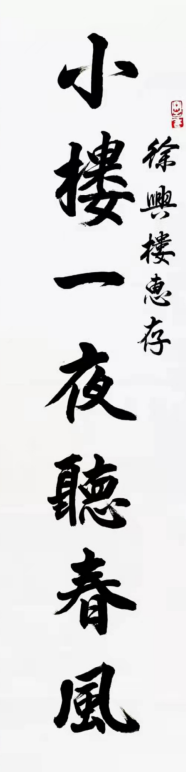 徐興樓惠存
小樓一夜聽春風